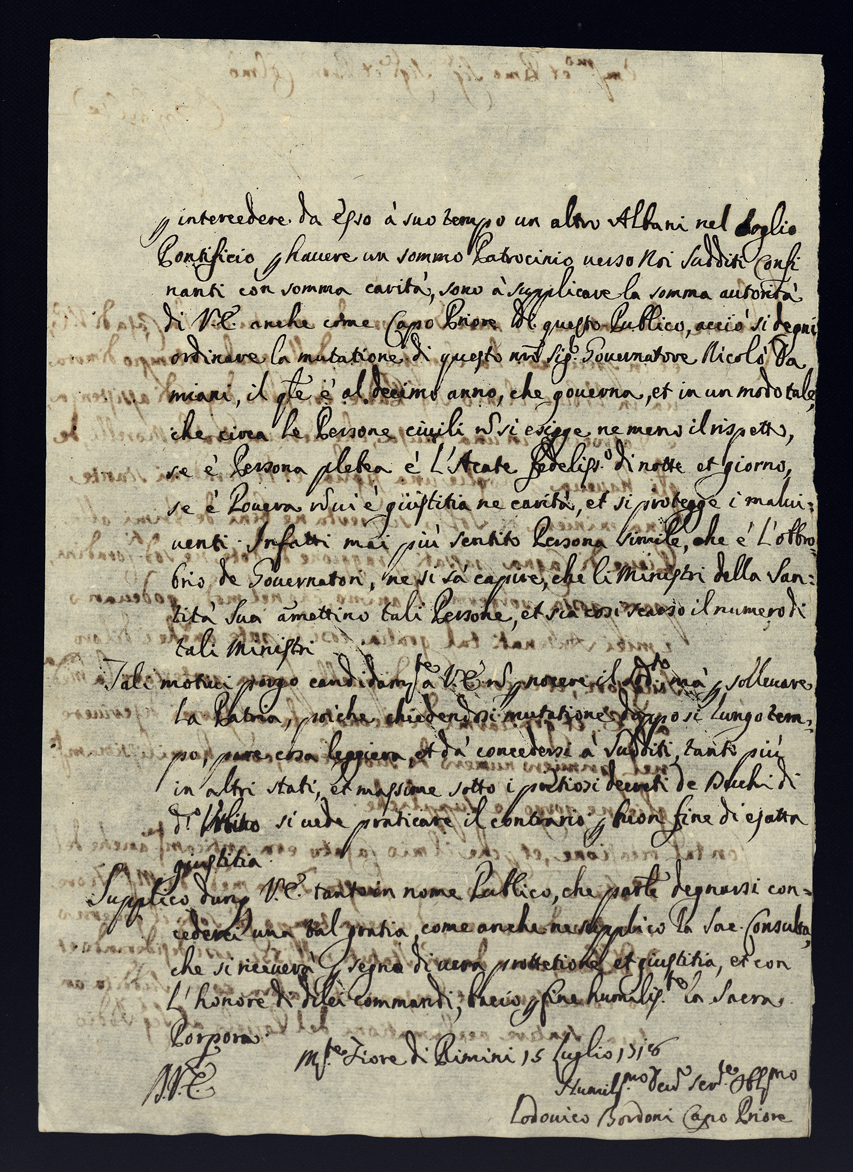 p intercedere da esso à suo tempo un altro Albani nel Soglio
Pontificio p havere un sommo Patrocinio verso Noi sudditi Confi
nanti con somma carità, sono à supplicare la somma autorità
di V.E. anche come Capo Priore di questo Publico, acciò si degni
ordinare la mutatione di questo nro sig. Governatore Nicolò Da
miani, il qle è al decimo anno, che governa, et in un modo tale,
che circa le Persone civili nō si esigge ne meno il rispetto,
se è Persona plebea è L'Acate fedeliss.o di notte et giorno,
se è Povera nō vi è giustitia ne carità, et si protegge i malvi=
venti. Infatti mai più sentito Persona simile, che è L'obbro=
brio de Governatori, ne si sà capire, che li Ministri della San=
tità Sua amettino tali Persone, et sia cosi scarso il numero di
tali Ministri
Tali motivi porgo candidam.te à V.E. nō p nocere il sodto mà p sollevare
la Patria, poiche chiedendosi mutatione doppo si lungo tem=
po, pare cosa leggiera, et da concedersi à sudditi, tanto più
in altri stati, et massime sotto i pretiosi decreti de Duchi di
d.o Urbino si vede praticare il contrario p buon fine di esatta
giustitia.
Supplico dunq V.E. tanto in nome Publico, che parle degnarsi con=
cederci una tal gratia, come anche ne supplico la Sac. Consulta,
che si riceverà p segno di vera prottetione et giustitia, et con
L'honore di dilei commandi, bacio p fine humiliss.te la Sacra
Porpora
D.V.E. M.te Fiore di Rimini 15 Luglio 1718
Humiliss.mo Dev.o ser.re Obb.mo
Lodovico Bordoni Capo Priore